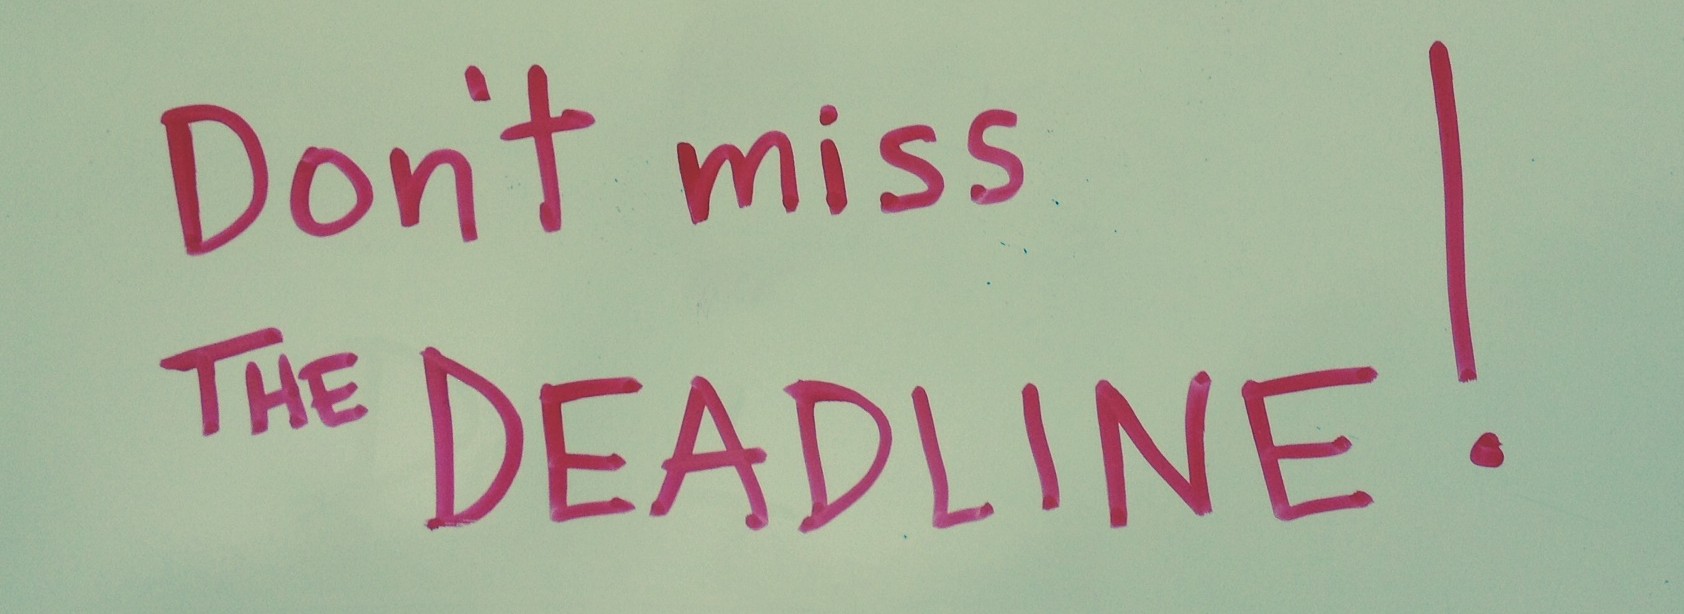 Don't miss
THE DEADLINE!